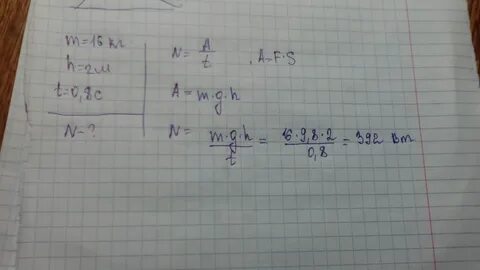 m=16 кг
h=2м
t=0,8с
N-?
N= A/t , A=F·S
A= m·g·h
N= m·g·h/t = 16·9,8·2/0,8 = 392 Вт